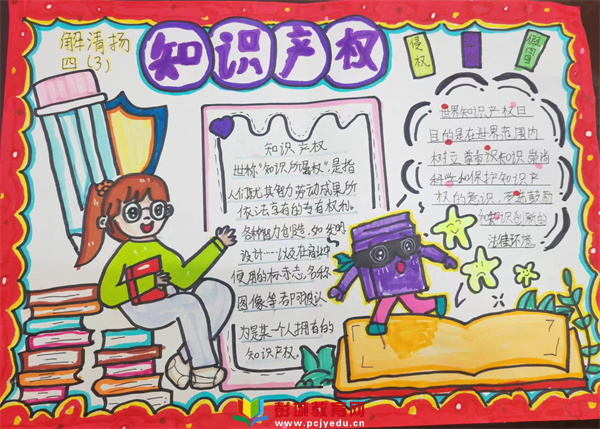 解清扬
四(3)
知识产权
侵权
假冒
知识产权
世称"知识所属权",是指
人们就其智力劳动成果所
依法享有的专有权利。
各种智力创造,如发明
设计……以及在商业中
使用的标志、名称
图像等都可被认
为是某一个人拥有的
知识产权。
世界知识产权日
目的是在世界范围内
树立尊重知识崇尚
科学和保护知识产
权的意识,
知识创新的
法律环境
彭城教育网
www.pcjyedu.cn